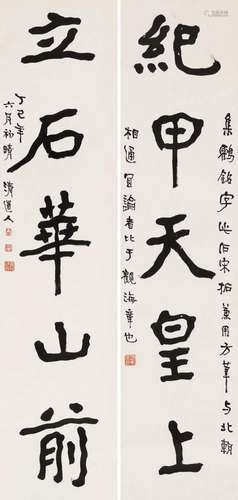 集鶴銘字此石宋拓兼用方筆与北朝
紀甲天皇上
相通冐論者比于觀海章也
立石華山前
丁巳年
六月初晴 清道人